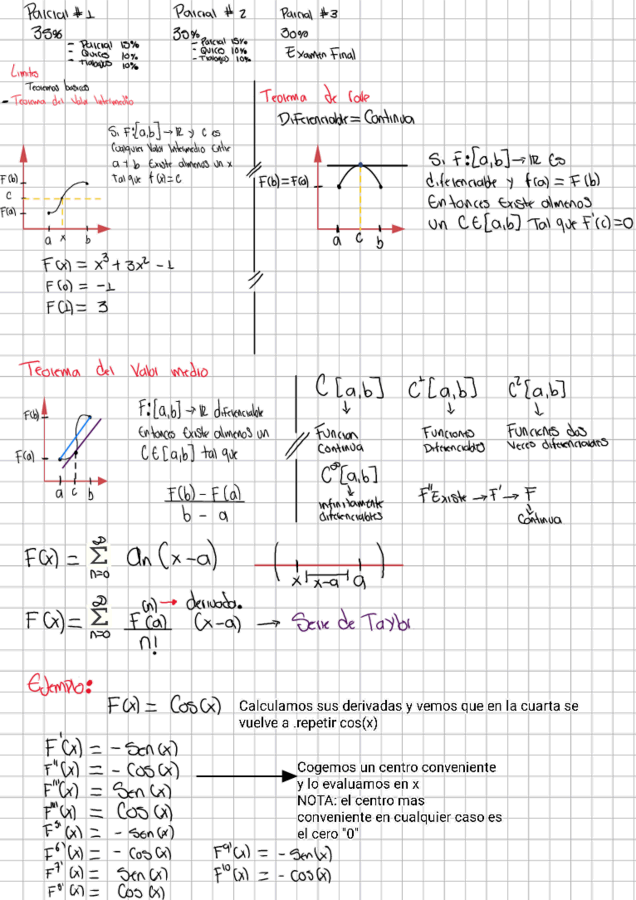 Parcial # 1
35%
- Parcial 15%
- Quices 10%
- Trabajos 10%
Parcial # 2
30%
- Parcial 15%
- Quices 10%
- Trabajos 10%
Parcial #3
30%
Examen Final
Limite
Teoremas basicos
- Teorema del Valor Intermedio
Si F:[a,b]→ℝ y c es
Cualquier Valor Intermedio Entre
a y b Existe almenos un x
Tal que f(x)=c
F(b)
C
F(a)
a x b
F(x) = x³ + 3x² - 1
F(0) = -1
F(1) = 3
Teorema de Role
Diferenciable = Continua
F(b)=F(a)
a c b
Si F:[a,b]→ℝ Es
diferenciable y f(a) = F(b)
Entonces Existe almenos
un C∈[a,b] Tal que F'(c)=0
Teorema del Valor medio
F(b)
F(a)
a c b
F:[a,b]→ℝ diferenciable
Entonces Existe almenos un
C∈[a,b] tal que
F(b) - F(a)
b - a
C[a,b] C¹[a,b] C²[a,b]
↓ ↓ ↓
Funcion Funciones Funciones dos
Continua Diferenciables Veces diferenciables
C^∞[a,b]
↓
infinitamente
diferenciables
F'' Existe → F' → F
↓
Continua
F(x) = ∑ n=0 ∞ an (x-a)
( x x-a a )
F(x) = ∑ n=0 ∞ F(a)^(n) / n! (x-a) → Serie de Taylor
(n) → derivada.
Ejemplo:
F(x) = Cos(x)
Calculamos sus derivadas y vemos que en la cuarta se
vuelve a .repetir cos(x)
F'(x) = - Sen(x)
F''(x) = - Cos(x)
F'''(x) = Sen(x)
F''''(x) = Cos(x)
F⁵'(x) = - Sen(x)
F⁶'(x) = - Cos(x)
F⁷'(x) = Sen(x)
F⁸'(x) = Cos(x)
F⁹'(x) = - Sen(x)
F¹⁰(x) = - Cos(x)
Cogemos un centro conveniente
y lo evaluamos en x
NOTA: el centro mas
conveniente en cualquier caso es
el cero "0"